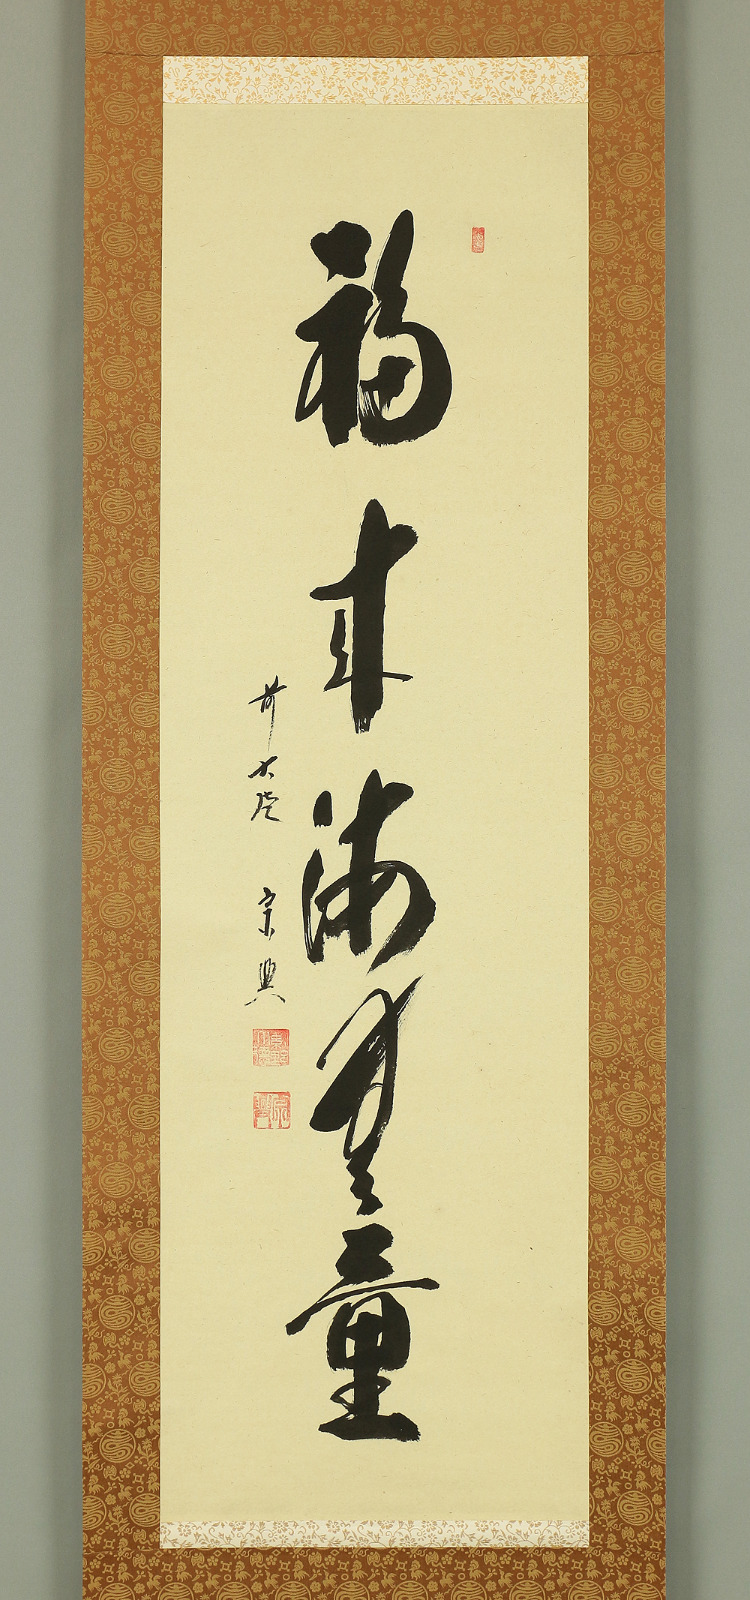 福聚海無量
前大徳 宗興